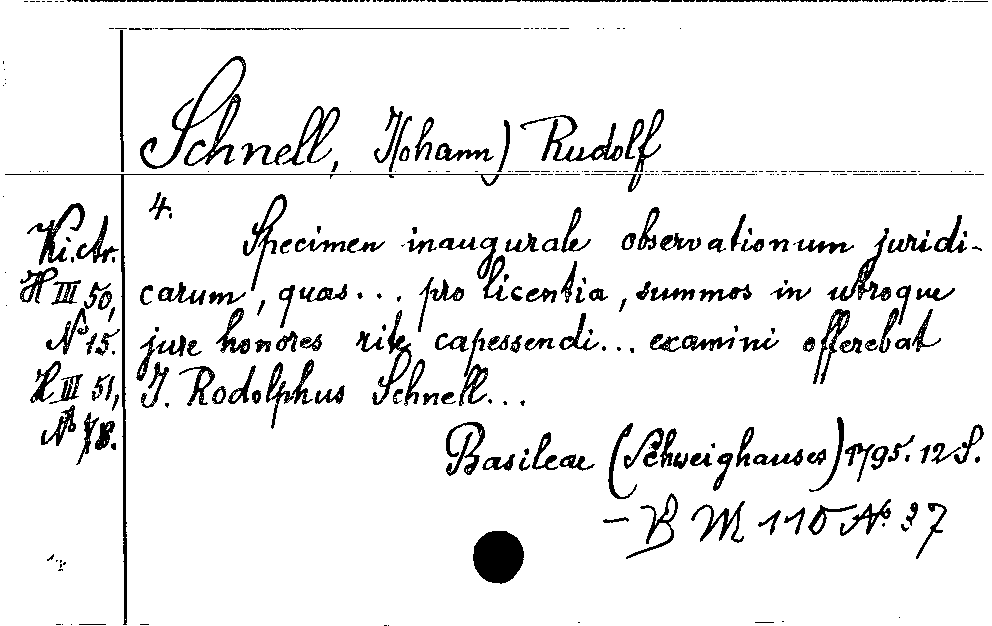 Schnell, J(ohann) Rudolf
4.
Specimen inaugurale observationum juridi-
carum, quas... pro licentia, summos in utroque
jure honores rite capessendi... examini offerebat
J. Rodolphus Schnell...
Basileae (Schweighauses) 1795. 12 S.
– B M 110 No 37
Ki.Ar.
H III 50,
No 15.
H III 51,
No 78.